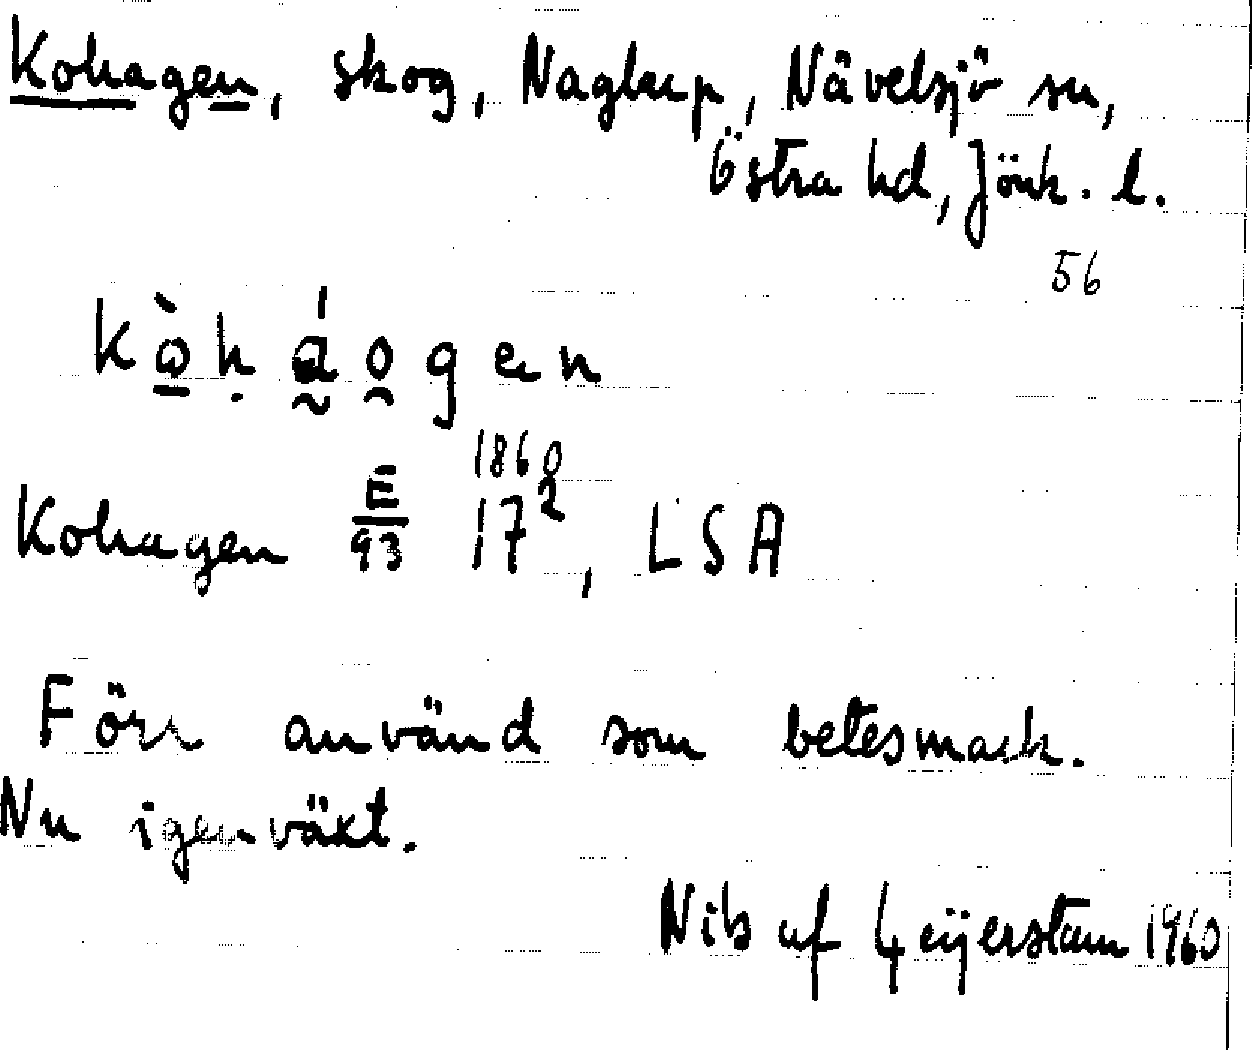 Kohagen, skog, Naglarp, Nävelsjö sn,
Östra hd, Jönk. l.
56
kòhágen
1860
Kohagen E/93 17², LSA
Förr använd som betesmark.
Nu igenväxt.
Nils af Geijerstam 1960